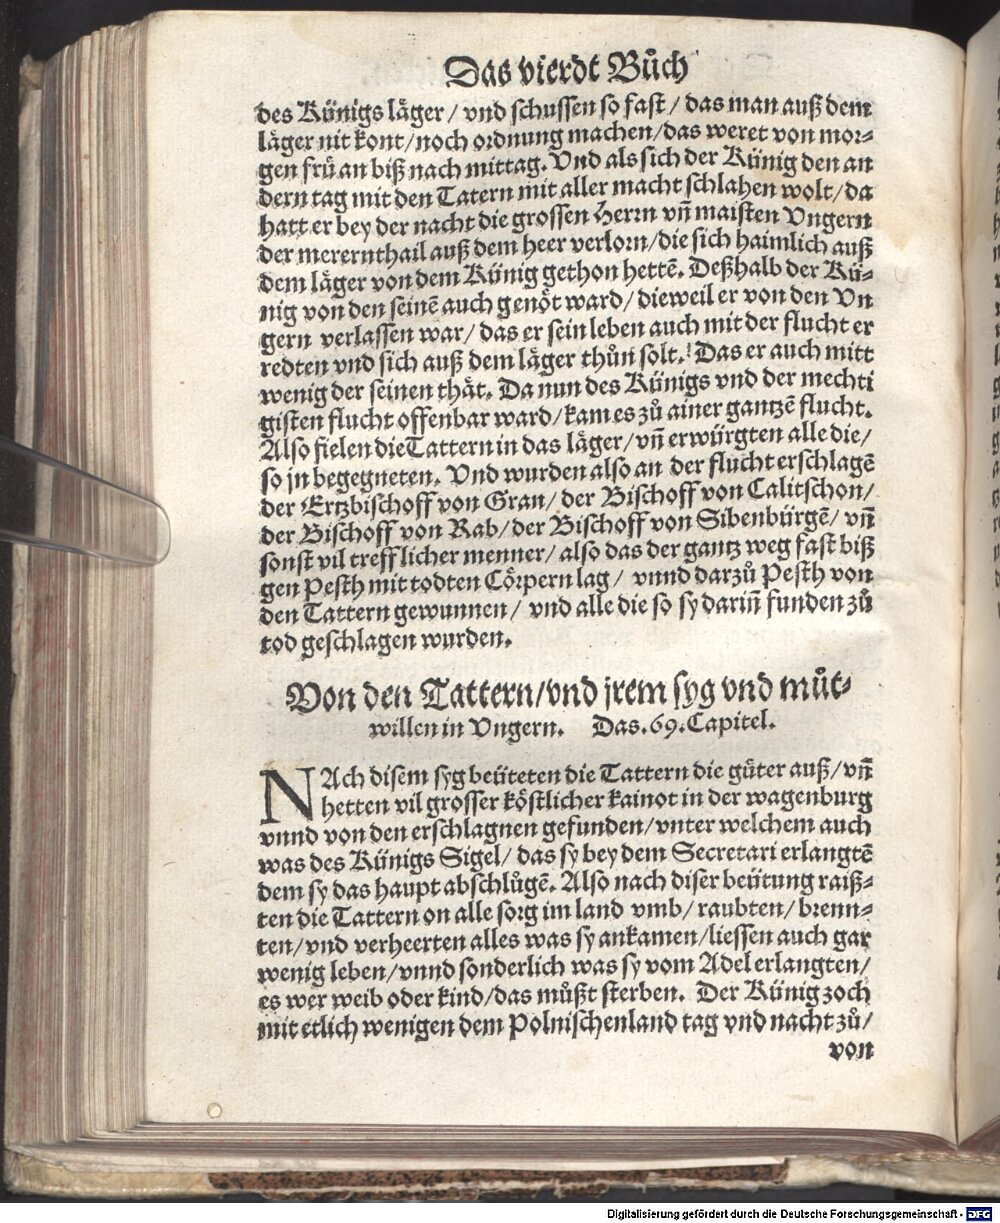 Das vierdt Bůch
des Künigs läger / vnd schussen so fast / das man auß dem
läger nit kont / noch ordnung machen / das weret von mor⸗
gen frü an biß nach mittag. Vnd als sich der Künig den an
dern tag mit den Tatern mit aller macht schlahen wolt / da
hatt er bey der nacht die grossen Herrn vñ maisten Vngern
der merernthail auß dem heer verlorn / die sich haimlich auß
dem läger von dem Künig gethon hettẽ. Deßhalb der Kü⸗
nig von den seinẽ auch genöt ward / dieweil er von den Vn
gern verlassen war / das er sein leben auch mit der flucht er
redten vnd sich auß dem läger thůn solt. Das er auch mitt
wenig der seinen thät. Da nun des Künigs vnd der mechti
gisten flucht offenbar ward / kam es zů ainer gantzẽ flucht.
Also fielen die Tattern in das läger / vñ erwürgten alle die /
so jn begegneten. Vnd wurden also an der flucht erschlagẽ
der Ertzbischoff von Gran / der Bischoff von Calitschon /
der Bischoff von Rab / der Bischoff von Sibenbürgẽ / vñ
sonst vil trefflicher menner / also das der gantz weg fast biß
gen Pesth mit todten Cörpern lag / vnnd darzů Pesth von
den Tattern gewunnen / vnd alle die so sy dariñ funden zů
tod geschlagen wurden.
Von den Tattern / vnd jrem syg vnd můt⸗
willen in Vngern. Das .69. Capitel.
NAch disem syg beüteten die Tattern die güter auß / vñ
hetten vil grosser köstlicher kainot in der wagenburg
vnnd von den erschlagnen gefunden / vnter welchem auch
was des Künigs Sigel / das sy bey dem Secretari erlangtẽ
dem sy das haupt abschlůgẽ. Also nach diser beütung raiß⸗
ten die Tattern on alle sorg im land vmb / raubten / brenn⸗
ten / vnd verheerten alles was sy ankamen / liessen auch gar
wenig leben / vnnd sonderlich was sy vom Adel erlangten /
es wer weib oder kind / das můßt sterben. Der Künig zoch
mit etlich wenigen dem Polnischenland tag vnd nacht zů /
von
Digitalisierung gefördert durch die Deutsche Forschungsgemeinschaft - DFG